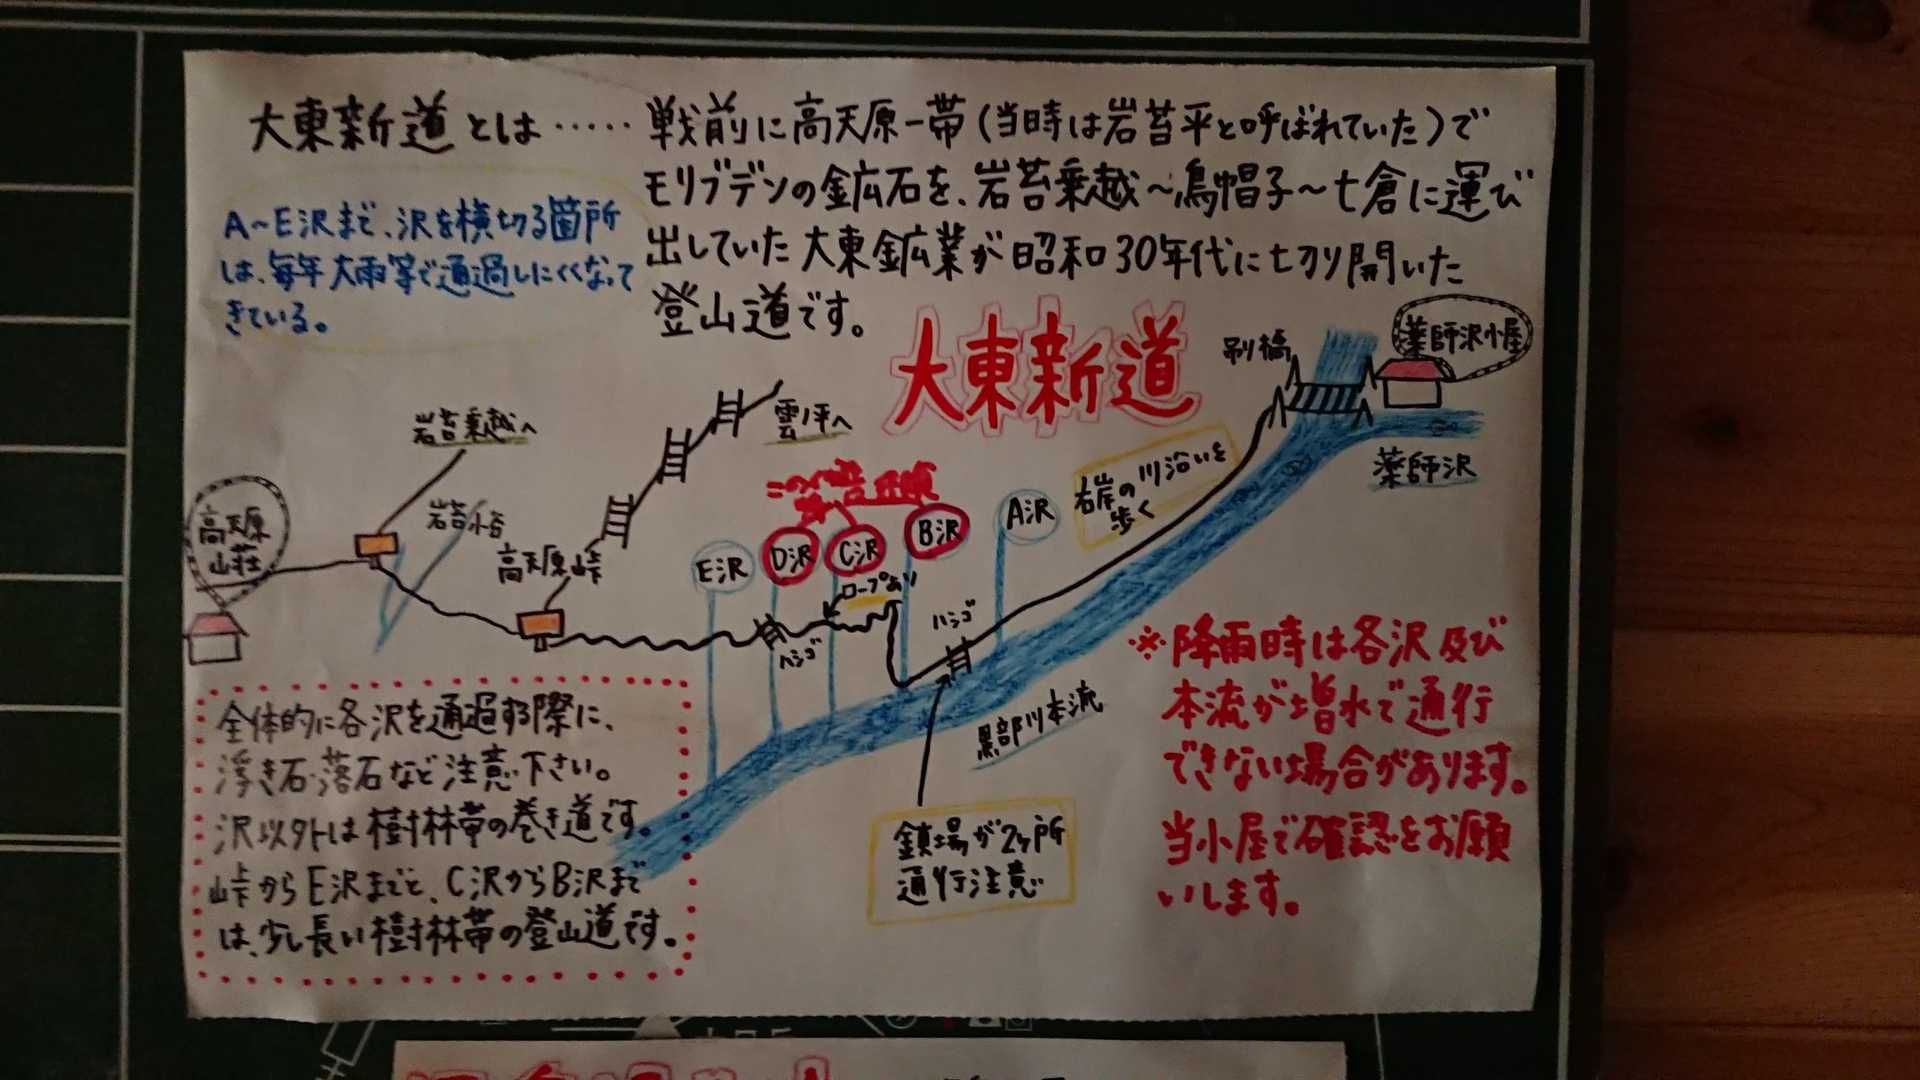 大東新道とは……戦前に高天原一帯(当時は岩苔平と呼ばれていた)で
モリブデンの鉱石を、岩苔乗越〜烏帽子〜七倉に運び
出していた大東鉱業が昭和30年代に切り開いた
登山道です。
A〜E沢まで、沢を横切る箇所
は、毎年大雨等で通過しにくくなって
きている。
大東新道
薬師沢小屋
吊り橋
薬師沢
岩苔乗越へ
雲ノ平へ
岩苔小谷
高天原
山荘
高天原峠
E沢
D沢
C沢
B沢
A沢
右岸の川沿いを
歩く
ロープあり
ハシゴ
ハシゴ
黒部川本流
鎖場が2ヶ所
通行注意
※降雨時は各沢及び
本流が増水で通行
できない場合があります。
当小屋で確認をお願
いします。
全体的に各沢を通過する際に、
浮き石・落石など注意下さい。
沢以外は樹林帯の巻き道です。
峠からE沢までと、C沢からB沢まで
は、少し長い樹林帯の登山道です。